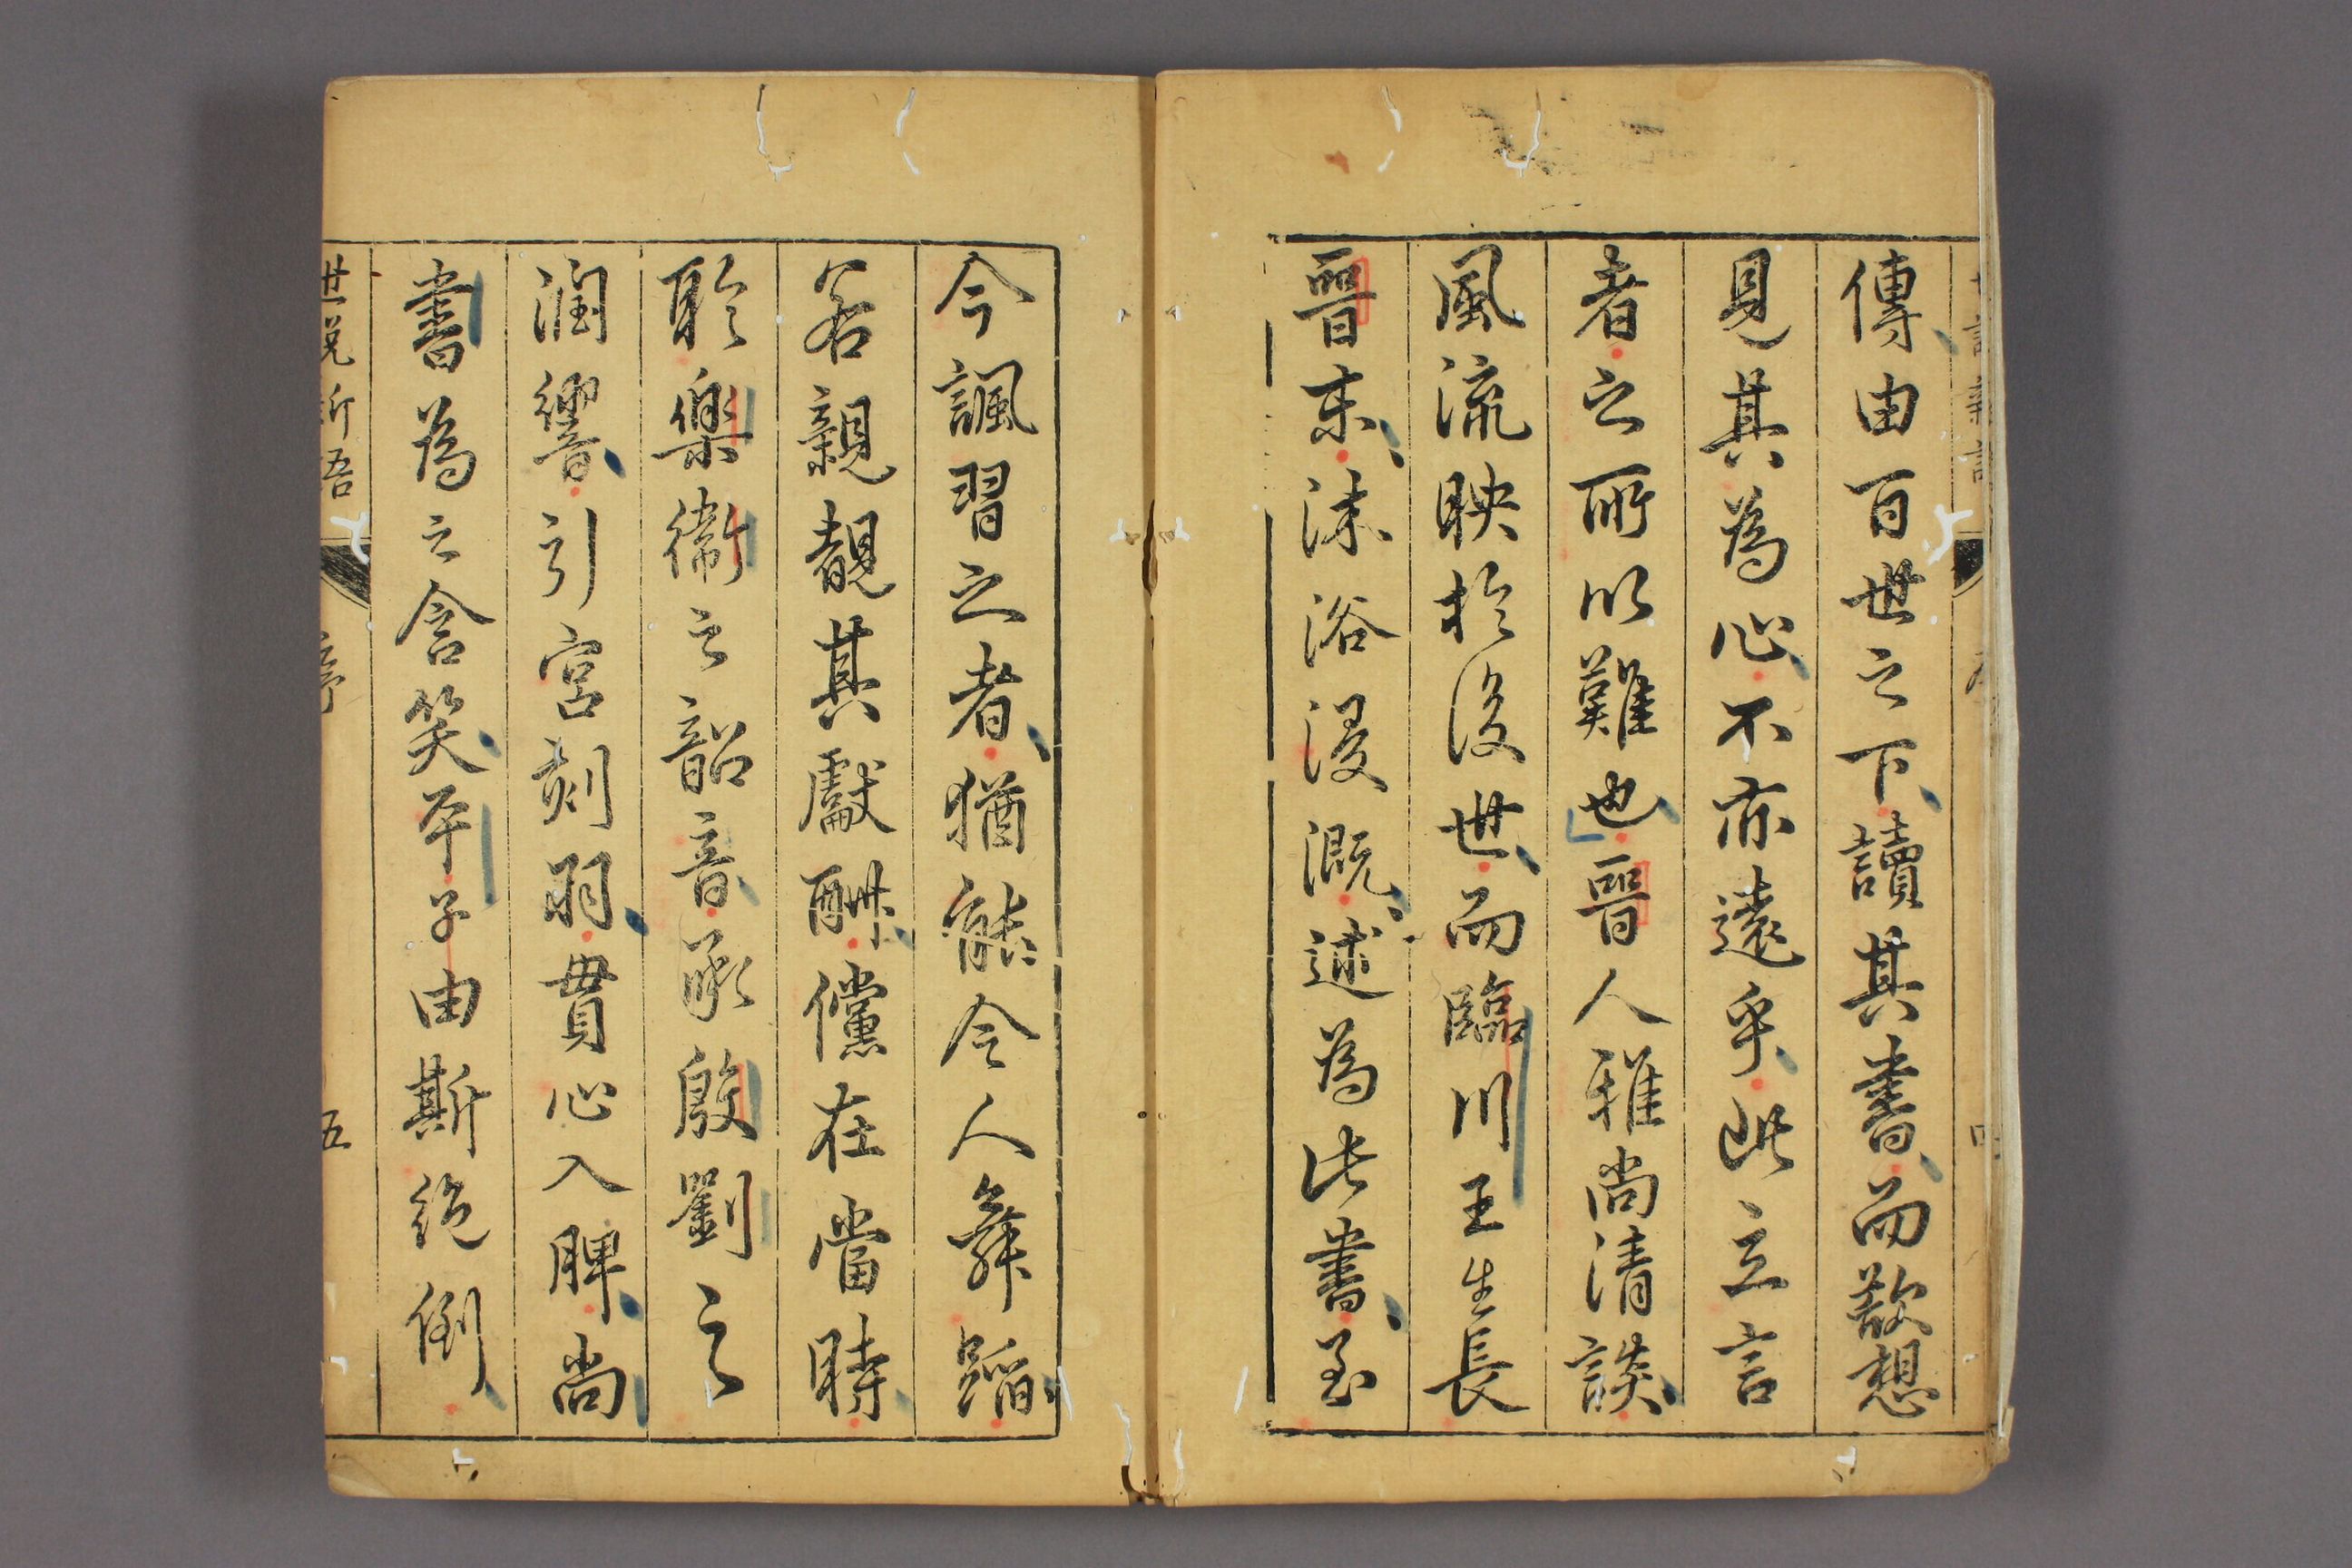 傳由百世之下讀其書而欲想
見其為心不亦遠乎此立言
者之所以難也晉人雅尚清談
風流映於後世而臨川王生長
晉末沐浴浸溉述為此書至
今諷習之者猶能令人舞蹈
若親覩其獻酬儻在當時
聆樂衛之韶音承殷劉之
潤響引宮刻羽貫心入脾尚
書為之含笑平子由斯絕倒
世說新語 序 五